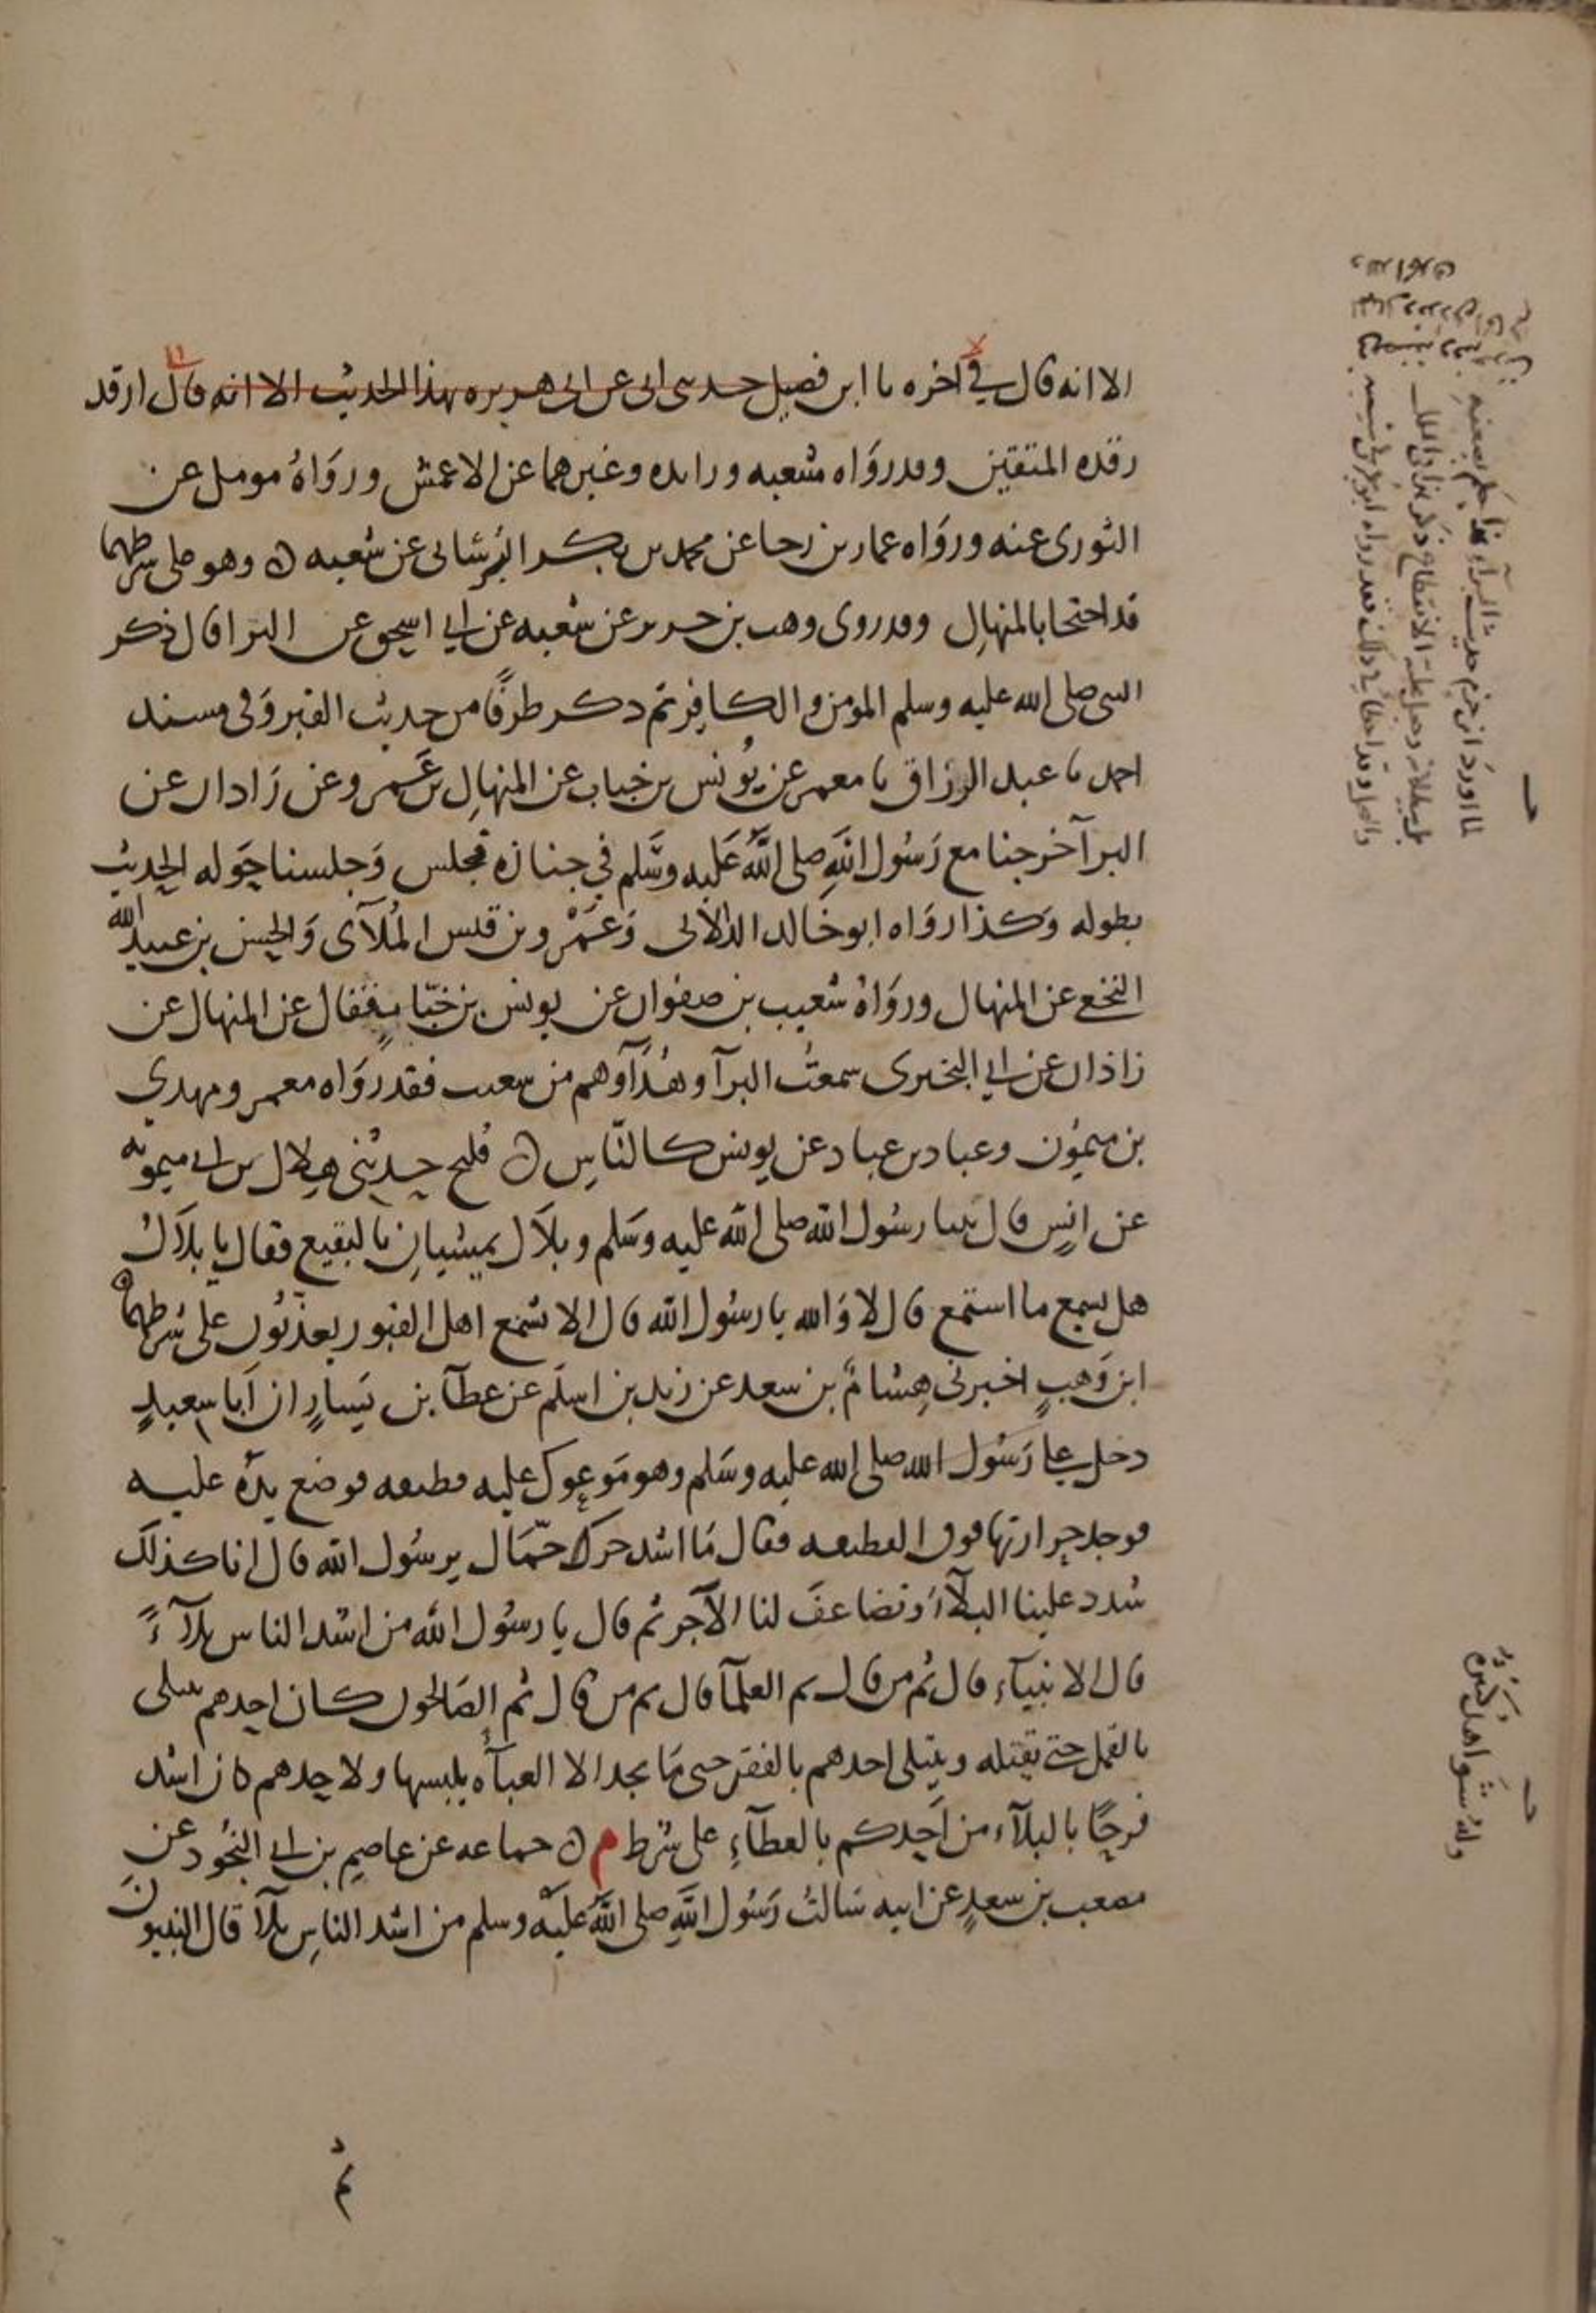 الا انه قال في آخره ما ابن فضيل حدثني ابي عن ابي هريره بهذا الحديث الا انه قال ارقد
رقده المتقين وقد رواه شعبه وزائده وغيرهما عن الاعمش ورواه مومل عن
الثوري عنه ورواه عمار بن رجا عن محمد بن بكر البرساني عن شعبه ه وهو على شرطهما
قد احتجا بالمنهال وقد روى وهب بن جرير عن شعبه عن ابي اسحق عن البرا قال ذكر
النبي صلى الله عليه وسلم المومن والكافر ثم ذكر طرفا من حديث القبر وفي مسند
احمد ما عبد الرزاق ما معمر عن يونس بن خباب عن المنهال بن عمر وعن زاذان عن
البرآ خرجنا مع رسول الله صلى الله عليه وسلم في جنازه فجلس وجلسنا حوله الحديث
بطوله وكذا رواه ابو خالد الدالاني وعمرو بن قيس الملآي والحسن بن عبيد الله
النخعي عن المنهال ورواه شعيب بن صفوان عن يونس بن خباب فقال عن المنهال عن
زاذان عن ابي البختري سمعت البرآ وهذا وهم من شعيب فقد رواه معمر ومهدي
بن ميمون وعباد بن عباد عن يونس كالناس ه فليح حدثني هلال بن ابي ميمونه
عن انس قال بينا رسول الله صلى الله عليه وسلم وبلال يمشيان بالبقيع فقال يا بلال
هل تسمع ما استمع قال لا والله يا رسول الله قال الا تسمع اهل القبور يعذبون على شرطهما ه
ابن وهب اخبرني هشام بن سعد عن زيد بن اسلم عن عطآ بن يسار ان ابا سعيد
دخل على رسول الله صلى الله عليه وسلم وهو موعوك عليه قطيفه فوضع يده عليه
فوجد حرارتها فوق القطيفه فقال ما اشد حر حماك يرسول الله قال انا كذلك
شدد علينا البلآء وتضاعف لنا الآجر ثم قال يا رسول الله من اشد الناس بلآء
قال الانبيآء قال ثم من قال ثم العلمآ قال ثم من قال ثم الصالحون كان احدهم يبتلى
بالقمل حتى تقتله ويبتلى احدهم بالفقر حتى ما يجد الا العبآه يلبسها ولاحدهم كان اشد
فرحا بالبلآء من احدكم بالعطآء على شرط م ه حماعه عن عاصم بن ابي النجود عن
مصعب بن سعد عن ابيه سالت رسول الله صلى الله عليه وسلم من اشد الناس بلآ قال النبيون
ثم
لما اورد ابن حزم حديث البرآء
وله شواهد كثيره